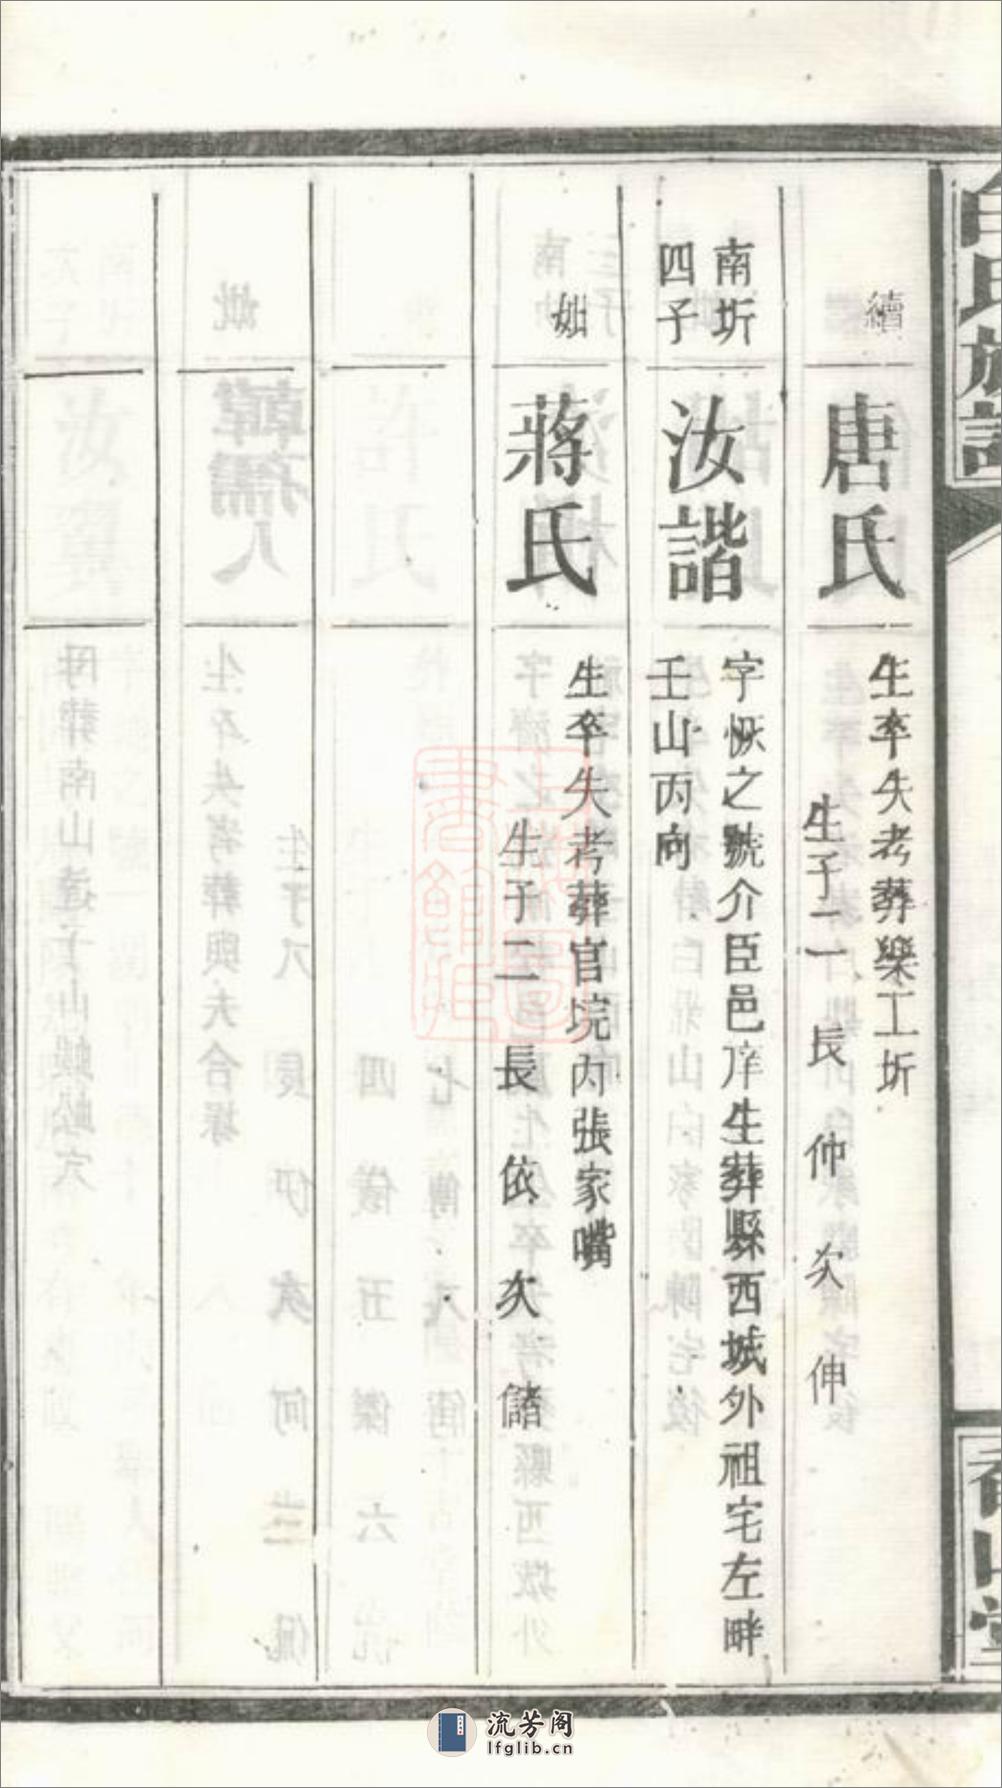 續
唐氏
生卒失考葬樂工圻
生子二長仲次伸
南圻
四子
汝諧
字愀之號介臣邑庠生葬縣西城外祖宅左畔
壬山丙向
妣
蔣氏
生卒失考葬官境內張家嘴
生子二長依次儲
流芳阁
lfglib.cn